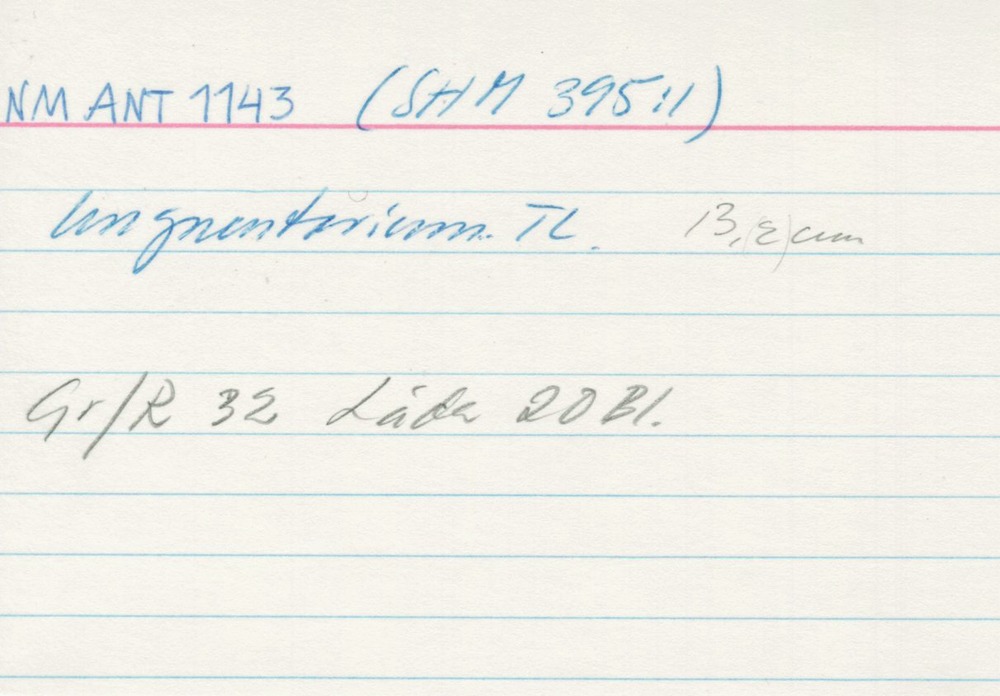 NM ANT 1143 (SHM 395:1)
Unguentarium. TL. 13,(2)cm
Gr/R 32 Låda 20 Bl.